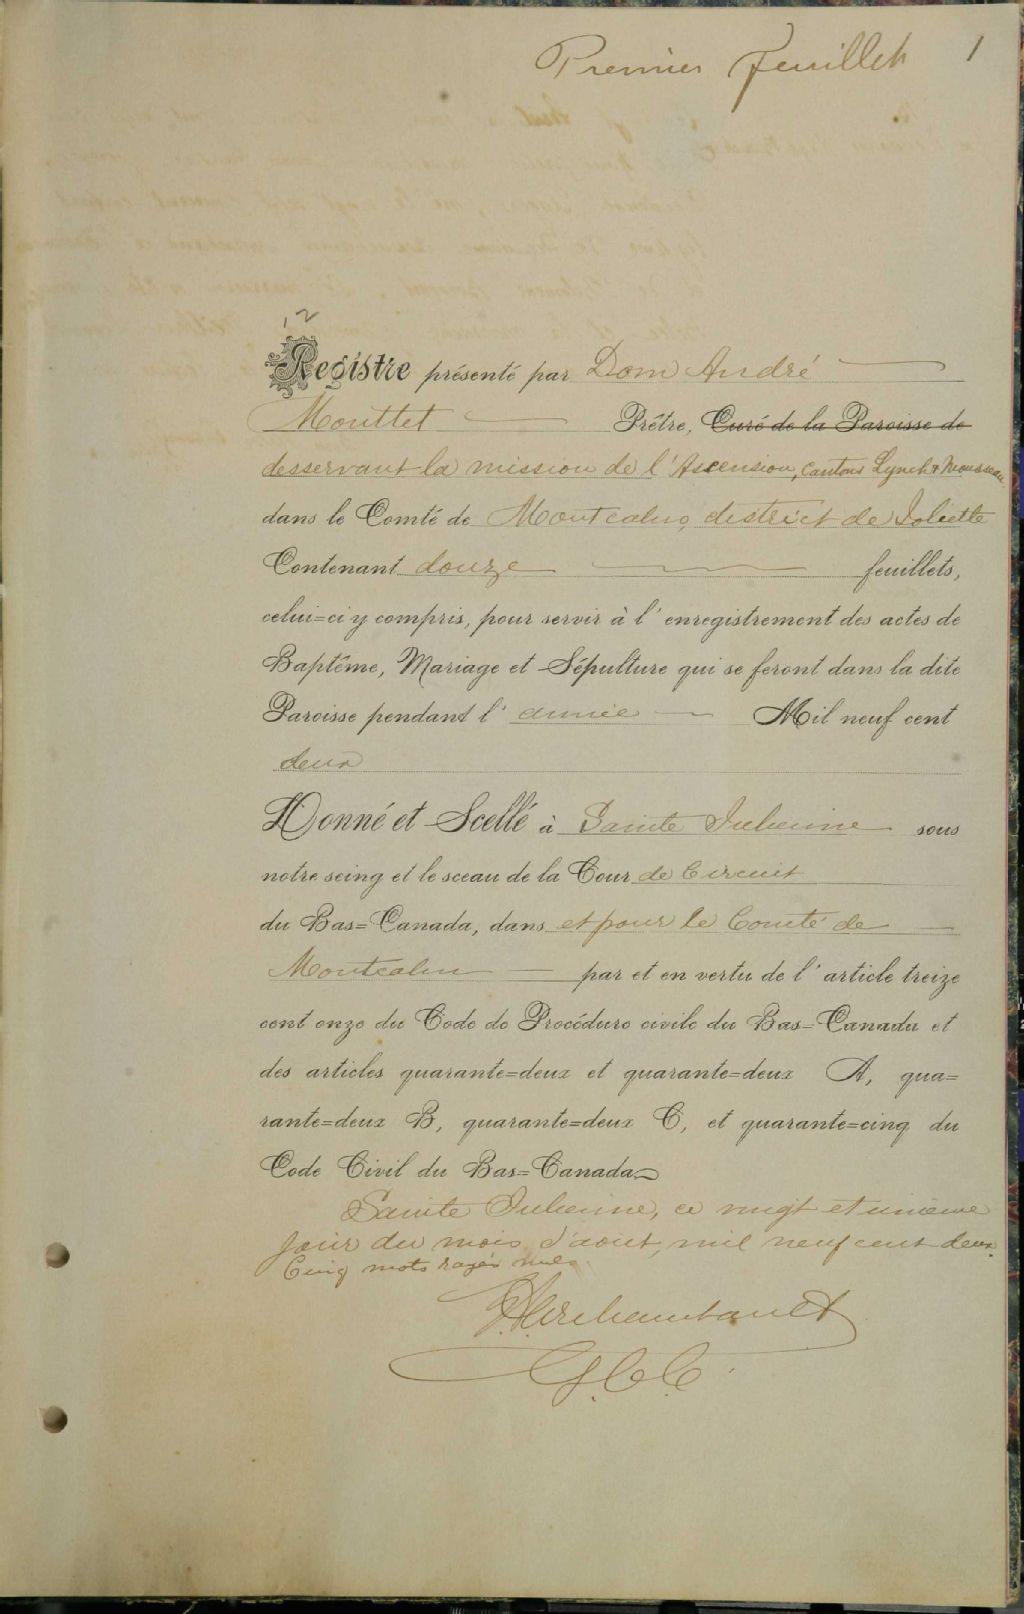 Premier feuillet 1
12
Registre présenté par Dom André
Mouttet Prêtre, Curé de la Paroisse de
desservant la mission de l'Ascension, Cantons Lynch & Mousseau
dans le Comté de Montcalm, district de Joliette
Contenant douze feuillets,
celui=ci y compris, pour servir à l'enregistrement des actes de
Baptême, Mariage et Sépulture qui se feront dans la dite
Paroisse pendant l'année Mil neuf cent
deux
Donné et Scellé à Sainte Julienne sous
notre seing et le sceau de la Cour de Circuit
du Bas=Canada, dans et pour le Comté de
Montcalm par et en vertu de l'article treize
cent onze du Code de Procédure civile du Bas=Canada et
des articles quarante=deux et quarante=deux A, qua=
rante=deux B, quarante=deux C, et quarante=cinq du
Code Civil du Bas=Canada
Sainte Julienne, ce vingt et unieme
jour du mois d'aout, mil neuf cent deux.
Cinq mots rayés nuls.
Archambault
G.C.C.